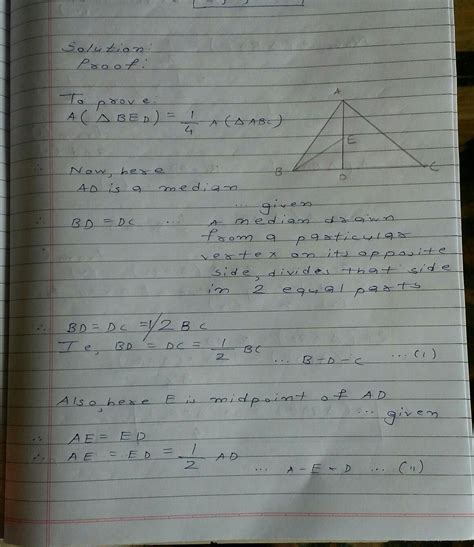 Solution:
Proof:
To prove:
A(△BED) = 1/4 A(△ABC)
A
E
B
D
C
∴ Now, here
AD is a median
... given
∴ BD = DC ... A median drawn
from a particular
vertex on its opposite
side, divides that side
in 2 equal parts
∴ BD = DC = 1/2 BC
I e, BD = DC = 1/2 BC
... B-D-C ... (i)
Also, here E is midpoint of AD
... given
∴ AE = ED
∴ AE = ED = 1/2 AD
... A-E-D ... (ii)